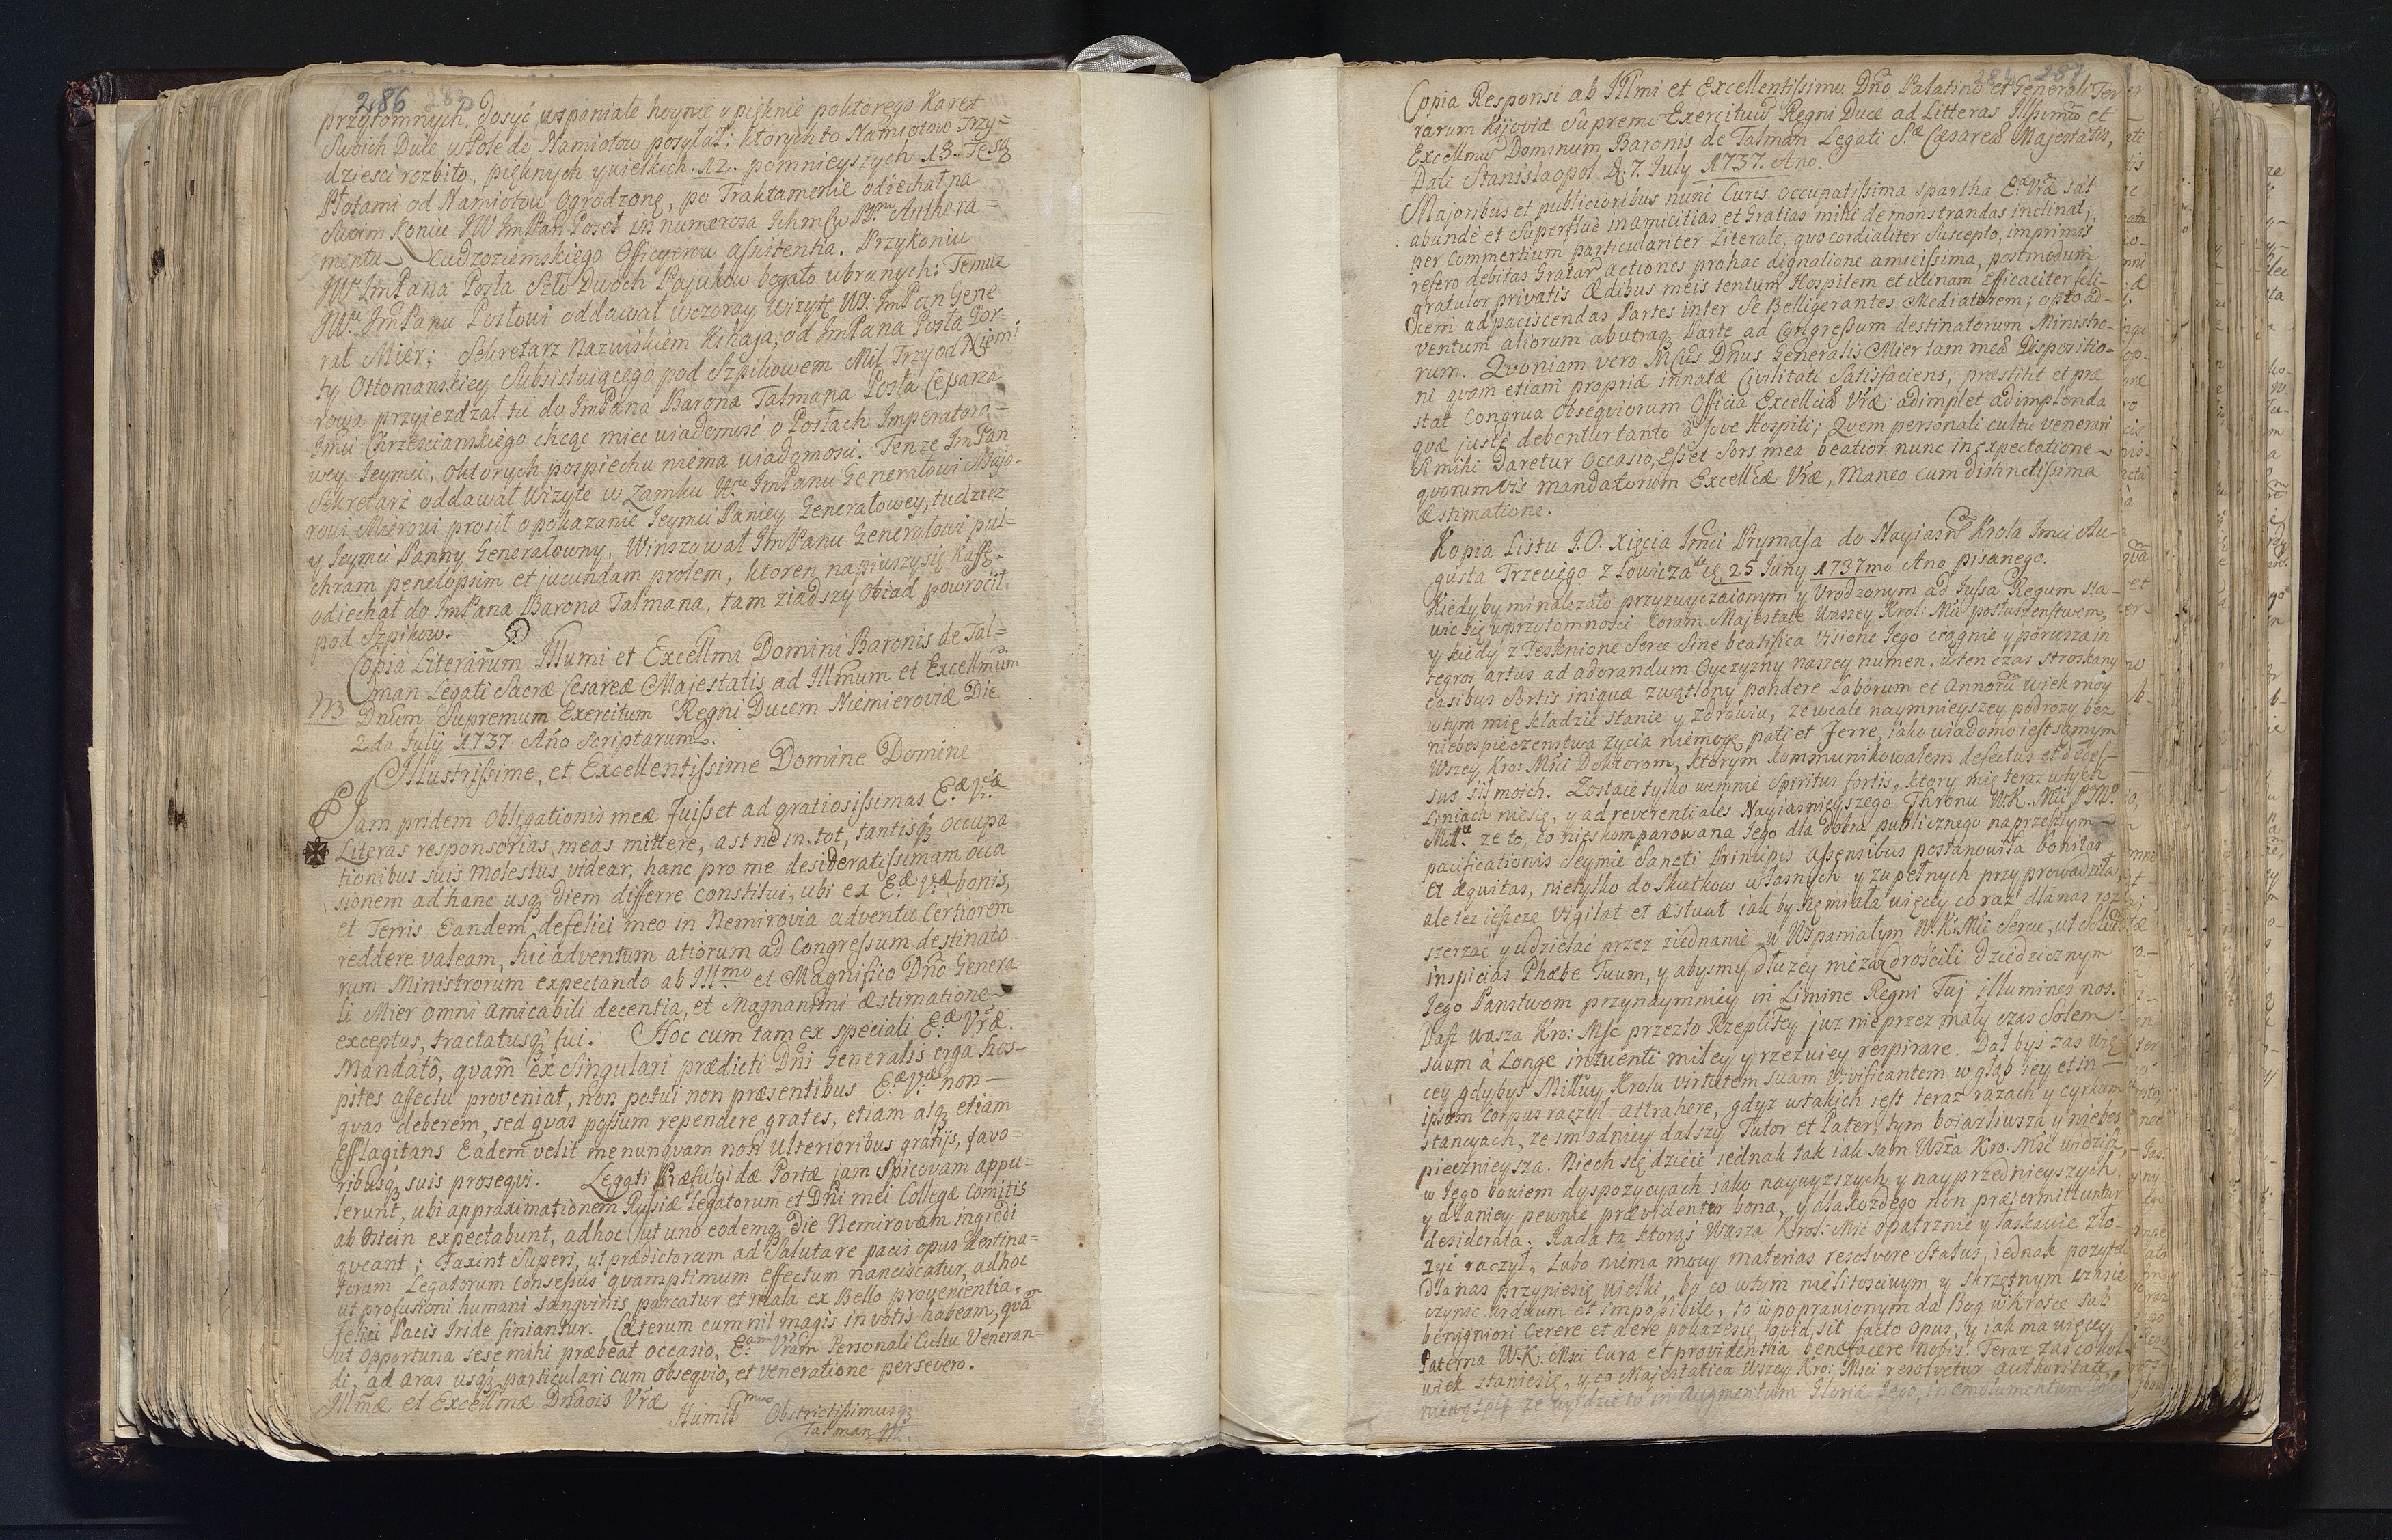 286 283
przytomnych, dosyć wspaniale hoynie y pięknie poktorego Karet
Swoich Dwie w Pole do Namiotow posyłał; ktorych to Namiotow Trzy=
dziesci rozbito, pięknych y wielkich .12. pomnieyszych 18. Tesz
Płotami od Namiotow Ogrodzone, po Traktamencie odiechał na
Swoim Koniu JW ImPan Poseł in numerosa Authera=
mentu Cudzoziemskiego Officyerow assistentia. Przy koniu
JWo ImPana Posła Szło Dwoch Pajukow bogato ubranych: Temuz
JWu ImPanu Posłowi oddawał wczoray Wizytę WJ: ImPan Gene
rał Mier; Sekretarz nazwiskiem Kihaja, od ImPana Posła Por=
ty Ottomanskiey Subsistuiącego pod Szpikowem Mil Trzy od Niemi
rowa przyiezdzał tu do ImPana Barona Talmana Posła Cessarza
Imci Chrzescianskiego chcąc miec wiadomość o Posłach Imperatoro=
wey Jeymci, o ktorych pospiechu niema wiadomosci. Tenze ImPan
Sekretarz oddawał Wizytę w Zamku ImPanu Generałowi Majo=
rowi Mierowi prosił o pokazanie Jeymci Paniey Generałowey, tudziez
y Jeymci Panny Generałowny, Winszował ImPanu Generałowi pul=
chram penelopsim et jucundam prolem, ktoren napiwszy się Kaffe.
odiechał do ImPana Barona Talmana, tam ziadszy Obiad powrocił
pod Szpikow.
Copia Literarum Illumi et Excellmi Domini Baronis de Tal=
man Legati Sacræ Cesareæ Majestatis ad Illmum et Excellmum
Dnum Supremum Exercitum Regni Ducem Niemieroviæ Die
2da Julij 1737. Año Scriptarum.
Illustrissime, et Excellentissime Domine Domine
Jam pridem Obligationis meæ fuisset ad gratiosissimas E.æ Vræ
Literas responsorias meas mittere, ast ne in tot, tantisq occupa
tionibus suis molestus videar, hanc pro me desideratissimam occa
sionem ad hanc usq diem differre constitui, ubi ex E.æ V.æ bonis,
et Terris Eandem de felici meo in Nemirovia adventu Certiorem
reddere valeam, hic adventum aliorum ad Congressum destinato
rum Ministrorum expectando ab Illmo et Magnifico Dno Genera
li Mier omni amicabili decentia, et Magnanimi æstimatione
exceptus, tractatusq fui. Hoc cum tam ex speciali E.æ Vræ.
Mandatô, qvam ex Singulari prædicti Dni Generalis erga hos=
pites affectu proveniat, non potui non præsentibus E.æ V.æ non
qvas deberem, sed qvas possum rependere grates, etiam atq etiam
efflagitans Eadem velit me nunqvam non Ulterioribus gratijs, favo=
ribusq suis proseqvi. Legati Præfulgidæ Portæ jam Spicovam appu=
lerunt, ubi appraximationem Rysiæ Legatorum et Dni mei Collegæ Comitis
ab Ostein expectabunt, adhoc ut uno eodemq die Nemirovam ingredi
qveant; Faxint Superi, ut prædictorum ad Salutare pacis opus destina=
torum Legatorum Consessus qvamptimum effectum nanciscatur, adhoc
ut profusioni humani sangvinis parcatur et mala ex Bello provenientia,
felici Pacis Iride finiantur. Cæterum cum nil magis in votis habeam, qvā
ut Opportuna sese mihi præbeat occasio, E.am Vram Personali Cultu Veneran=
di, ad aras usq particulari cum Obseqvio, et veneratione persevero.
Illmæ et Excellmæ Dnaois Vræ
Humilmus Obstrictissimusq
Talman
N3
287
Copia Responsi ab Illmi et Excellentissimo Dño Palatino et Generali Ter
rarum Kijoviæ Supremo Exercituū Regni Duce ad Litteras Illsimū et
Excellmū Dominum Baronis de Talman Legati S.æ Cæsareæ Majestatis,
Dati Stanislaopol d. 7. July 1737. Ano.
Majoribus et publicioribus nunc Curis occupatissima spartha E.æ Vræ sat
abunde et Superflue in amicitias et Gratias mihi demonstrandas inclinat;
per Commertium particulariter Literale, qvo cordialiter Suscepto, imprimis
refero debitas Gratar Actiones pro hac dignatione amicissima, postmodum
gratulor privatis Ædibus meis tentum Hospitem et utinam Efficaciter feli=
cem ad paciscendas Partes inter Se Belligerantes Mediatorem; opto ad=
ventum aliorum ab utraq Parte ad Congressum destinatorum Ministro=
rum. Qvoniam vero Mcus Dnus Generalis Mier tam meæ Dispositio=
ni qvam etiam propriæ innatæ Civilitati Satisfaciens; præstitit et præ
stat Congrua Obseqviorum Officia Excellciæ Vræ adimplet adimplenda
qvæ juste debentur tanto à Jove Hospiti; Qvem personali cultu venerari
si mihi Daretur Occasio, Esset Sors mea beatior, nunc in expectatione
qvorumvis mandatorum Excellciæ Vræ, Maneo cum distinctissima
Æstimatione.
Kopia Listu J.O. Xięcia Imci Prymasa do Nayiasno Krola Imci Au=
gusta Trzeciego z Łowicza de d 25 Juny 1737mo Ano pisanego.
Kiedyby mi nalezało przyzwyczaionym y Urodzonym ad Jussa Regum sta=
wic się w przytomności Coram Majestate Waszey Krol: Mci posłuszenstwem,
y kiedy z Tesknione Serce Sine beatifica Visione Jego ciągnie y porusza in
tegros artus ad adorandum Oyczyzny naszey numen, w ten czas stroskany
casibus Sortis iniquæ zwątlony pondere Laborum et Annorū wiek moy
w tym mię kładzie stanie y zdrowiu, ze wcale naymnieyszey podrozy bez
niebespieczenstwa zycia niemogę pati et ferre, jako wiadomo iest samym
Wszey Kro: Mści Doktorom, ktorym kommunikowałem defectus et deces=
sus sił moich. Zostaie tylko wemnie Spiritus fortis, ktory mię teraz w tych
Liniach niesie, y ad reverentiales Nayiasnieyszego Thronu W.K. Mci
Mill. ze to, co nieskomparowana Jego dla dobra publicznego na przeszłym
pacificationis Seymie Sancti Principis Assensibus postanowiła bonitas
et æquitas, nietylko do Skutkow własnych y zupełnych przyprowadziła,
ale tez ieszcze Vigilat et Æstuat iak by się miała więcey co raz dla nas roz
szerzać y udzielać przez ziednanie w Wspaniałym W.K. Mci Sercu, ut Solem
inspicias Phæbe Tuum, y abysmy dłuzey niezazdrościli Dziedzicznym
Jego Panstwom przynaymniey in Limine Regni Tuj illumines nos.
Dasz Wasza Kro: Msc przezto Rzeplitey juz nie przez mały czas Solem
suum à Longe intuenti miley y rzezwiey respirare. Dał bys zas wię
cey gdybys Miłłuy Krolu virtutem suam vivificantem w głąb iey et in
ipsum Corpus raczył attrahere, gdyz w takich iest teraz razach y cyrkum
stancyach, ze im odniey dalszy Tutor et Pater, tym boiazliwsza y niebes
pieznieysza. Niech się dzieie iednak tak iak sam Wsza Kro. Msc widzisz,
w Jego bowiem dyspozycyach iako naywyzszych y nayprzednieyszych
y dla niey pewnie prævidentur bona, y dla kozdego non prætermittuntur
desiderata. Rada ta ktorąś Wasza Krol: Mść opatrznie y łaskawie zło=
zyć raczył, Lubo niema mocy materias resolvere Status, iednak pozytek
dla nas przyniesie wielki, bo co w tym niesłitosciwym y skrzętnym czasie
czynić arduum et impossibile, to w poprawionym da Bog wkrotce sub
benigniori Cerere et aere pokaze się, qvid sit facto opus, y iak ma więcey
Paterna W.K. Msci Cura et providentia benefacere nobis. Teraz zas cokol
wiek stanie się, y co Majestatica Wszey Kro: Msci resolvetur authoritate,
niewątpię ze wyidzie to in Augmentum Gloriæ Jego, in emolumentum